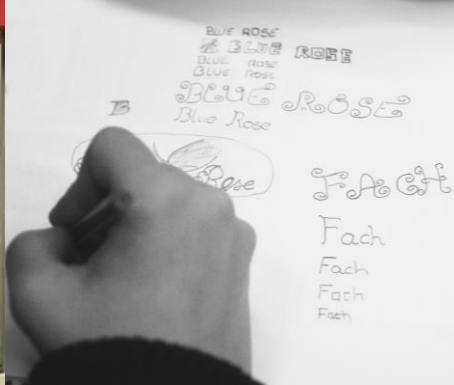 BLUE ROSE
BLUE ROSE
BLUE ROSE
BLUE ROSE
BLUE ROSE
Blue Rose
B
Rose
FACH
Fach
Fach
Fach
Fach